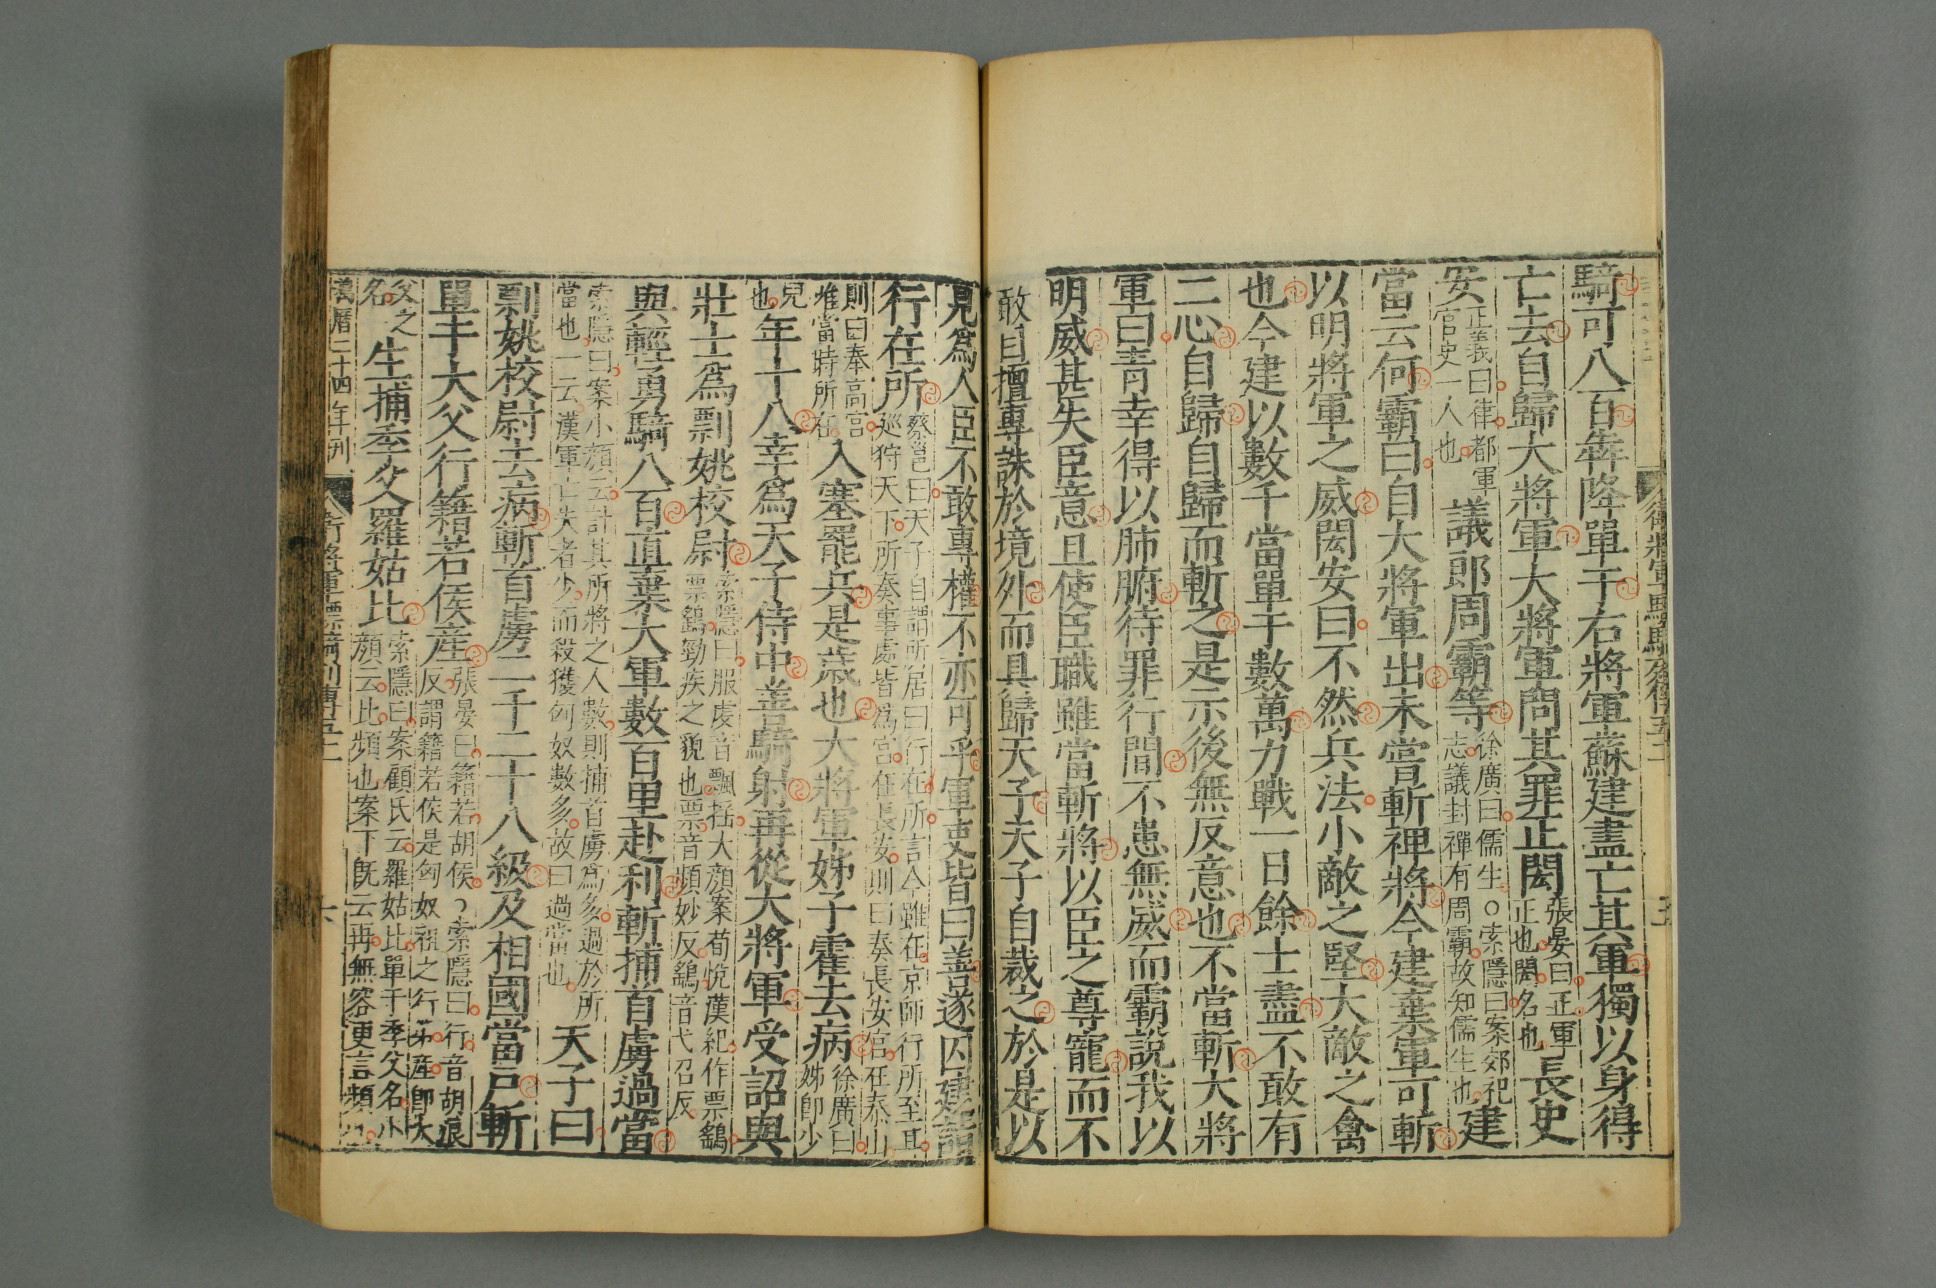 騎可八百犇降單于右將軍蘇建盡亡其軍獨以身得
亡去自歸大將軍大將軍問其罪正閎張晏曰正軍正也閎名也長史
安正義曰律都軍官史一人也議郎周霸等徐廣曰儒生○索隱曰案郊祀志議封禪有周霸故知儒生也建
當云何霸曰自大將軍出未嘗斬裨將今建棄軍可斬
以明將軍之威閎安曰不然兵法小敵之堅大敵之禽
也今建以數千當單于數萬力戰一日餘士盡不敢有
二心自歸自歸而斬之是示後無反意也不當斬大將
軍曰青幸得以肺腑待罪行間不患無威而霸說我以
明威甚失臣意且使臣職雖當斬將以臣之尊寵而不
敢自擅專誅於境外而具歸天子天子自裁之於是以
見爲人臣不敢專權不亦可乎軍吏皆曰善遂囚建詣
行在所蔡邕曰天子自謂所居曰行在所言今雖在京師行所至耳巡狩天下所奏事處皆爲宮在長安則曰奏長安宮在泰山
則曰奉高宮唯當時所在入塞罷兵是歲也大將軍姊子霍去病徐廣曰姊卽少
兒也年十八幸爲天子侍中善騎射再從大將軍受詔與
壯士爲剽姚校尉索隱曰服虔音飄搖大顏案荀悅漢紀作票鷂票鷂勁疾之貌也票音頻妙反鷂音弋召反
與輕勇騎八百直棄大軍數百里赴利斬捕首虜過當
索隱曰案小顏云計其所將之人數則捕首虜爲多過於所當也一云漢軍亡失者少而殺獲匈奴數多故曰過當也天子曰
剽姚校尉去病斬首虜二千二十八級及相國當戶斬
單于大父行籍若侯產張晏曰籍若胡侯○索隱曰行音胡浪反謂籍若侯是匈奴祖之行弟產卽大
父之名生捕季父羅姑比索隱曰案顧氏云羅姑比單于季父名小顏云比頻也案下旣云再無容更言頻
萬曆二十四年刊
衛將軍驃騎列傳五十一
六